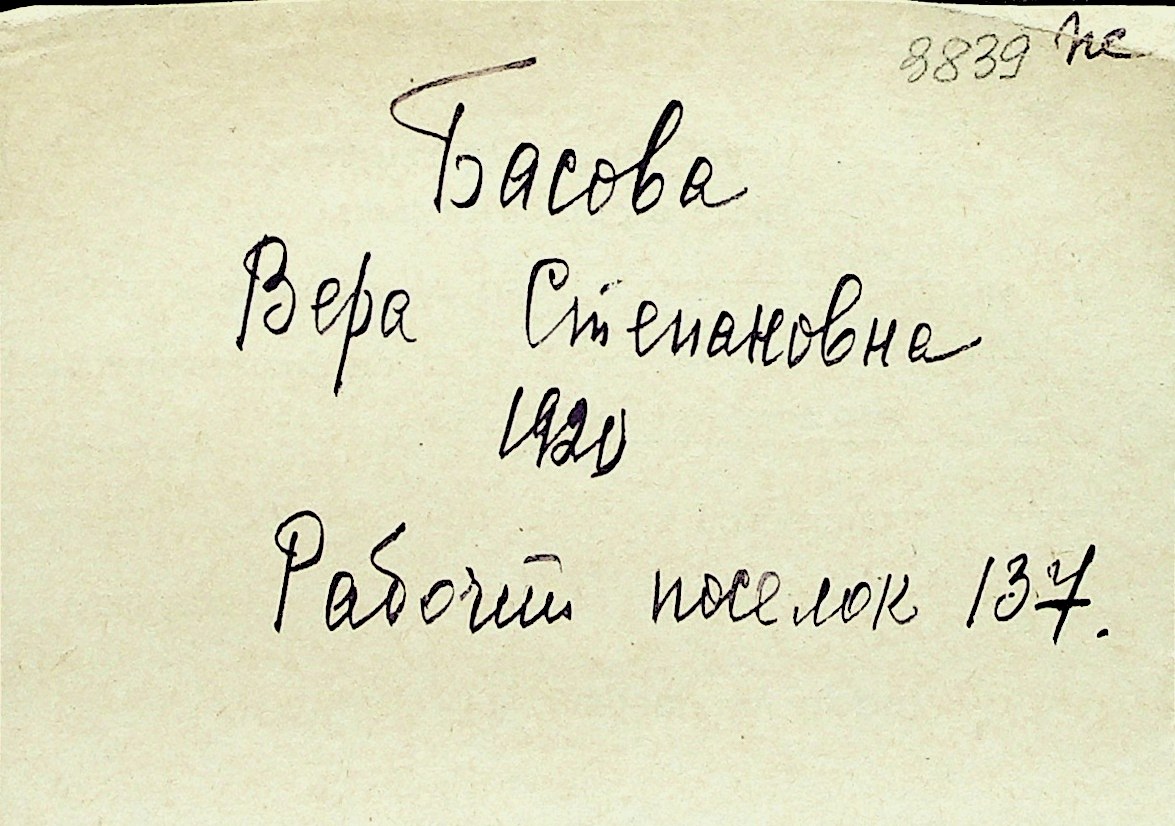 9839 пс
Басова
Вера Степановна
1920
Рабочий поселок 137.